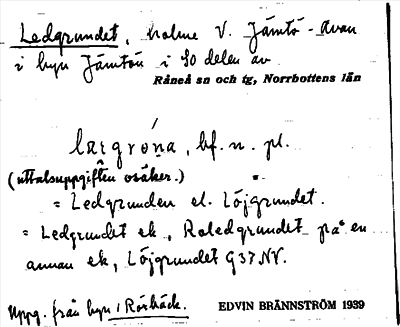 Ledgrundet, holme V. Jämtö-avan
i byn Jämtön i SO delen av
Råneå sn och tg, Norrbottens län
bf. n. pl.
(uttalsuppgiften osäker.)
= Ledgrunden el. Löjgrundet.
= Ledgrundet ek, Raledgrundet på en
annan ek, Löjgrundet G37NV.
Uppg. från byn i Rörbäck.
EDVIN BRÄNNSTRÖM 1939